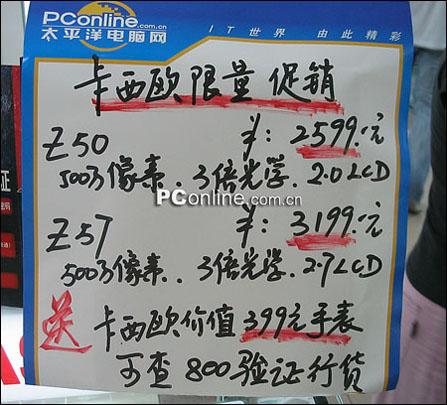 PConline.com.cn
太平洋电脑网 IT世界 由此精彩
卡西欧限量促销
Z50 羊:2599.元
500万像素.3倍光学.2.0LCD
PConline.com.cn
Z57 羊:3199.元
500万像素..3倍光学.2.7LCD
送 卡西欧价值399元手表
可查800验证行货
证